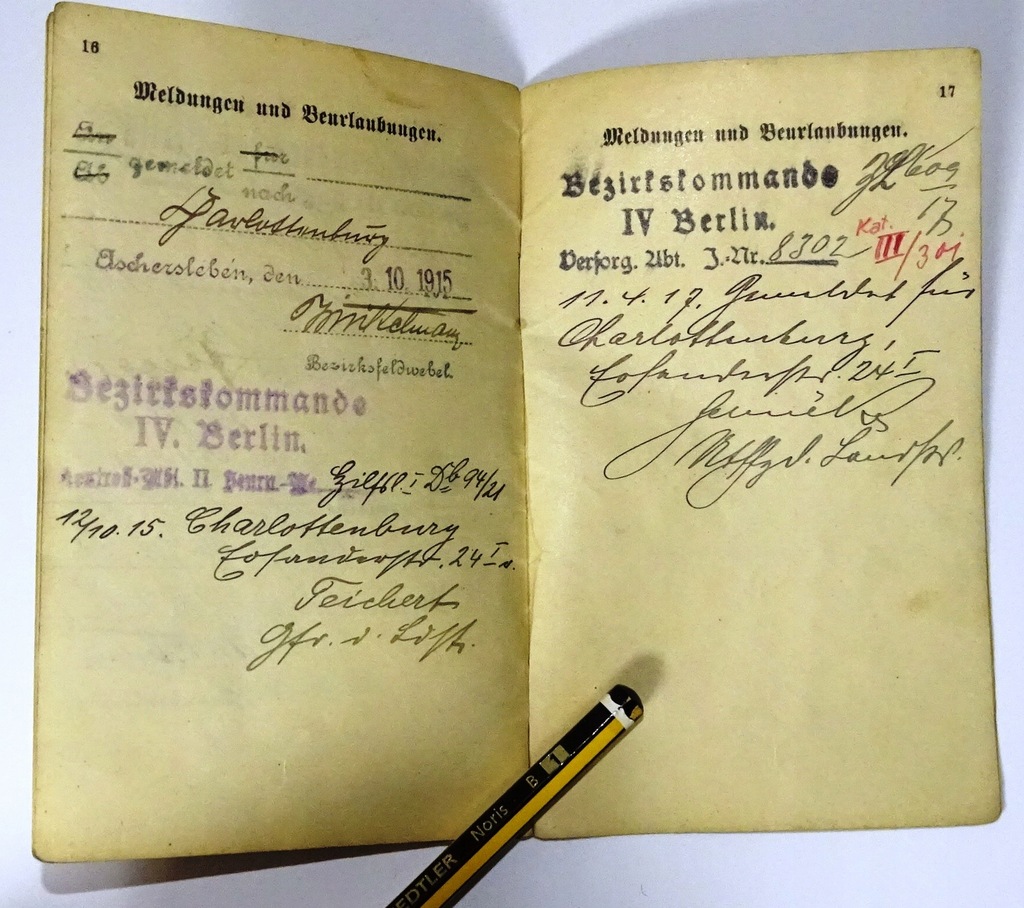 16
Meldungen und Beurlaubungen.
An für
Ab gemeldet nach
Charlottenburg
Aschersleben, den 3. 10. 1915
Winkelmann
Bezirksfeldwebel.
Bezirkskommando
IV. Berlin.
Kontroll-Abt. II
12/10. 15. Charlottenburg
Eosanderstr. 24 I
Teichert
Gfr. d. Ldst.
17
Meldungen und Beurlaubungen.
Bezirkskommando
IV Berlin.
17
Versorg. Abt. J.-Nr. 8302 Kat. III/301
11. 4. 17. Gemeldet für
Charlottenburg,
Eosanderstr. 24 I
Utffz. d. Landst.
STAEDTLER Noris B 1